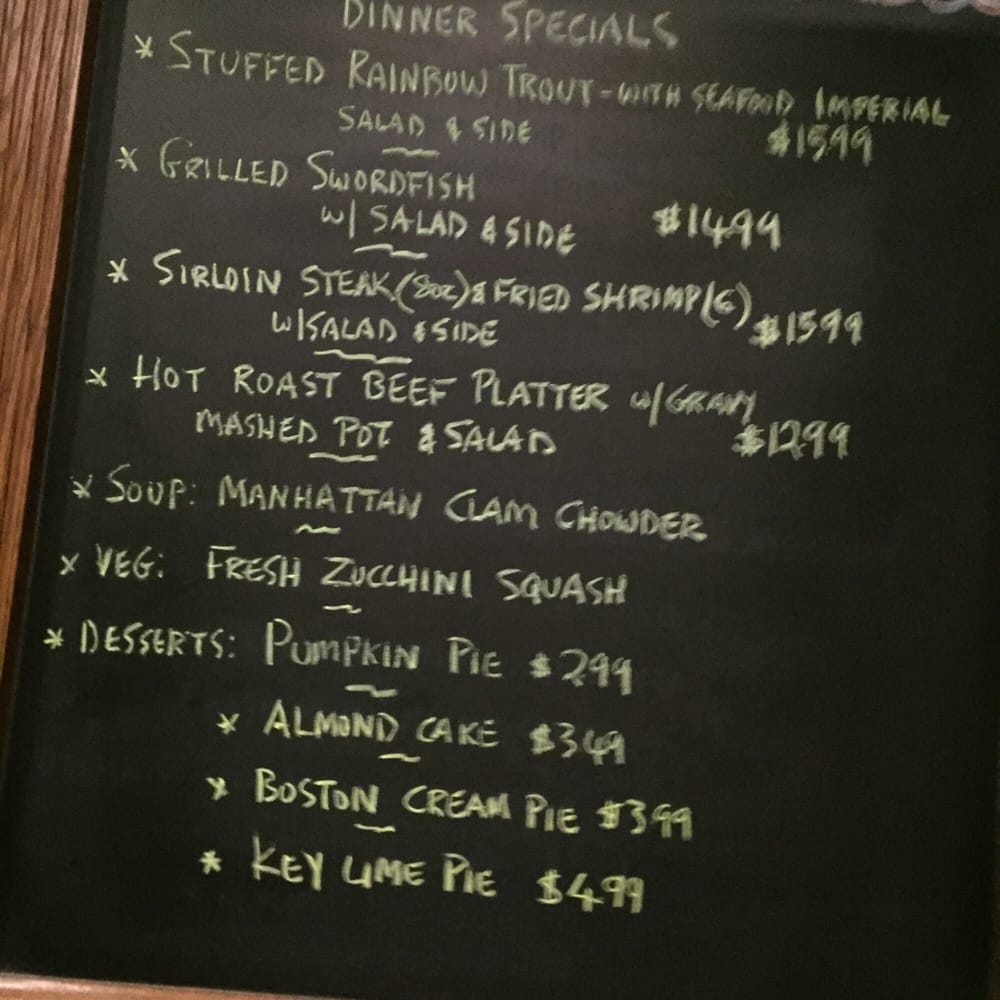 DINNER SPECIALS
* STUFFED RAINBOW TROUT - WITH SEAFOOD IMPERIAL
SALAD & SIDE $1599
* GRILLED SWORDFISH
W/ SALAD & SIDE $1499
* SIRLOIN STEAK (8oz) & FRIED SHRIMP (6)
W/SALAD & SIDE $1599
* HOT ROAST BEEF PLATTER W/GRAVY
MASHED POT & SALAD $1299
* SOUP: MANHATTAN CLAM CHOWDER
* VEG: FRESH ZUCCHINI SQUASH
* DESSERTS: PUMPKIN PIE $299
* ALMOND CAKE $349
* BOSTON CREAM PIE $399
* KEY LIME PIE $4.99